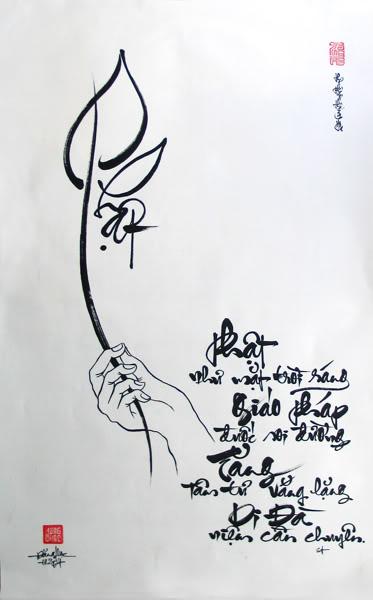 Phật
Phật
như mặt trời sáng
Giáo pháp
đuốc soi đường
Tăng
tâm tư vắng lặng
Di Đà
niệm cần chuyên.